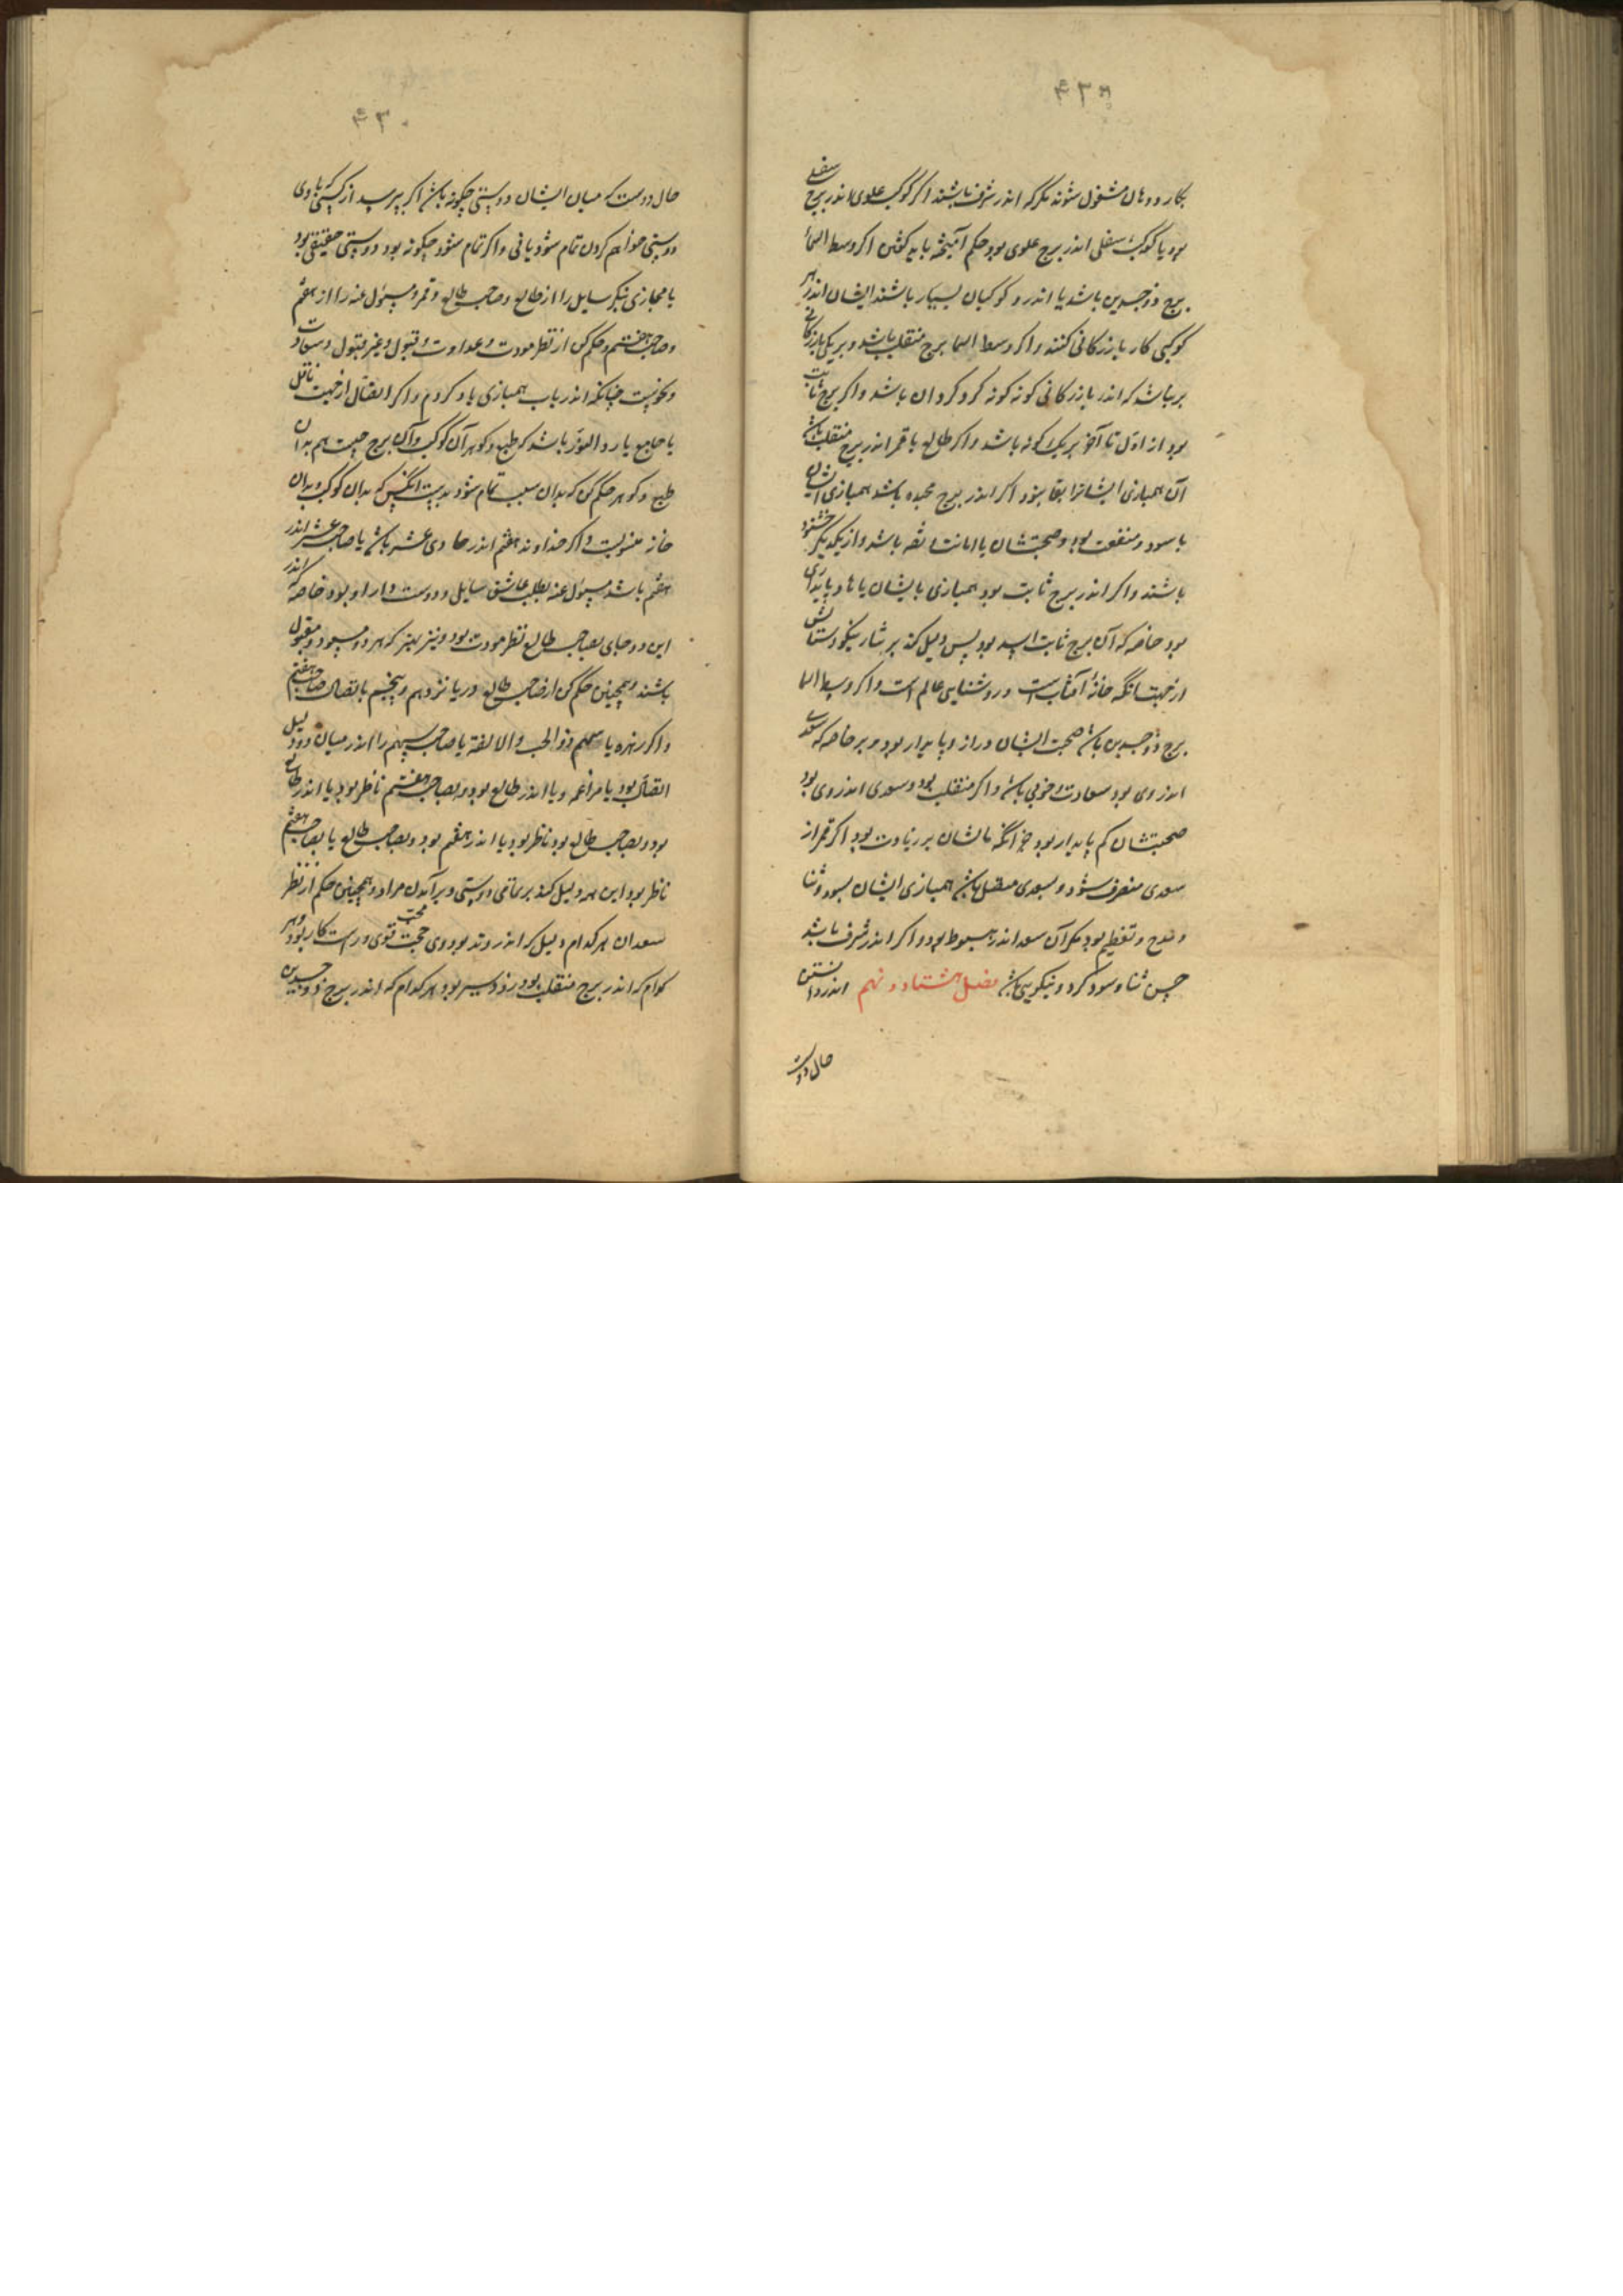 بکار و دهان مشغول شوند مگر که اندر شرف باشند اگر کوکب علوی اندر برج سفلی
بود یا کوکب سفلی اندر برج علوی بود حکم آمیخته باید کفتن اکر وسط السما
برج ذو جسدین باشد یا اندرو کوکبان بسیار باشند ایشان اندر هر
کوکبی کار بازرکانی کنند و اکر وسط السما برج منقلب باشد و بر یکی بازرکانی
بر نباشد که اندر بازرکانی کونه کونه کرد کردان باشد و اکر برج ثابت
بود از اول تا آخر بریک کونه باشد و اکر طالع یا قمر اندر برج منقلب باشد
آن همبازی ایشانرا بقا نبود اکر اندر برج مجسده باشد همبازی ایشان
با سود و منفعت بود و صحبتشان با امانت باشد و از یکدیکر خشنود
باشند و اکر اندر برج ثابت بود همبازی بایشان پایداری
بود خاصه که آن برج ثابت اسد بود پس دلیل کند بر نیکو و ستایش
از جهت انکه خانهٔ آفتاب است و روشنایی عالم است و اکر وسط السما
برج ذو جسدین باشد صحبت ایشان دراز و پایدار بود و بر خاصه که سعدی
اندر وی بود سعادت و خوبی باشد و اکر منقلب بود و سعدی اندر وی بود
صحبتشان کم پایدار بود جز آنکه مالشان بر زیادت بود اکر قمر از
سعدی منصرف شود و بسعدی متصل باشد همبازی ایشان بسود و ثنا
و مدح و تعظیم بود مکر آن سعد اندر هبوط بود و اکر اندر شرف باشد
ثنا و سود کرد و نیکویی باشد فصل هشتاد و نهم اندر دانستن
حال دوست
حال دوست که میان ایشان دوستی چکونه باشد اکر بپرسید از کسی که با وی
دوستی خواهم کردن تمام شود یا نی و اکر تمام شود چکونه بود دوستی حقیقی بود
یا مجازی بنکر سایل را از طالع و صاحب طالع و قمر و مسؤل عنه را از هفتم
و صاحب هفتم و حکم کن از نظر مودت و عداوت و قبول و غیر قبول و سعادت
و نحوست چنانکه اندر باب همبازی یاد کردم و اکر اتصال از جهت ناقل
یا جامع یا رد النور باشد که طبع و کوهر آن کوکب و آن برج چیست هم بدان
طبع و کوهر حکم کن که بدان سبب تمام شود بدست انکس که بدان کوکب و بدان
خانه منسوبست و اکر خداوند هفتم اندر حادی عشر باشد یا صاحب حادی عشر اندر
هفتم باشد مسؤل عنه بطلب عاشق سایل و دوست دار او بود خاصه که اندر
این دو جای بصاحب طالع نظر مودت بود و نیز که هر دو مسعود و مقبول
باشند و همچنین حکم کن از صاحب طالع و یازدهم و پنجم باتصال صاحب هفتم
و اکر زهره یا سهم الحب و الالفة یا صاحب سهم را اندر میان دو دلیل
اتصال بود یا مزاعمه و یا اندر طالع بود و بصاحب هفتم ناظر بود یا اندر طالع
بود و بصاحب طالع بود ناظر بود یا اندر هفتم بود و بصاحب طالع یا بصاحب هفتم
ناظر بود این همه دلیل کند بر تمامی دوستی و برآمدن مراد و همچنین حکم از نظر
سعدان هر کدام دلیل که اندر وتد بود وی محب قوی و راست کار بود و هر
کدام که اندر برج منقلب بود زود سیر بود هر کدام که اندر برج ذو جسدین